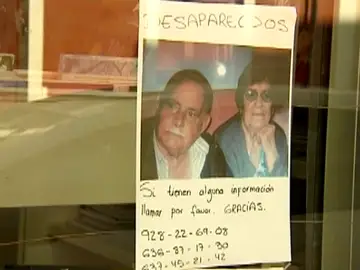 DESAPARECIDOS
Si tienen alguna información
llamar por favor. GRACÍAS.
928-22-69-08
636-87-17-30
637-45-21-42